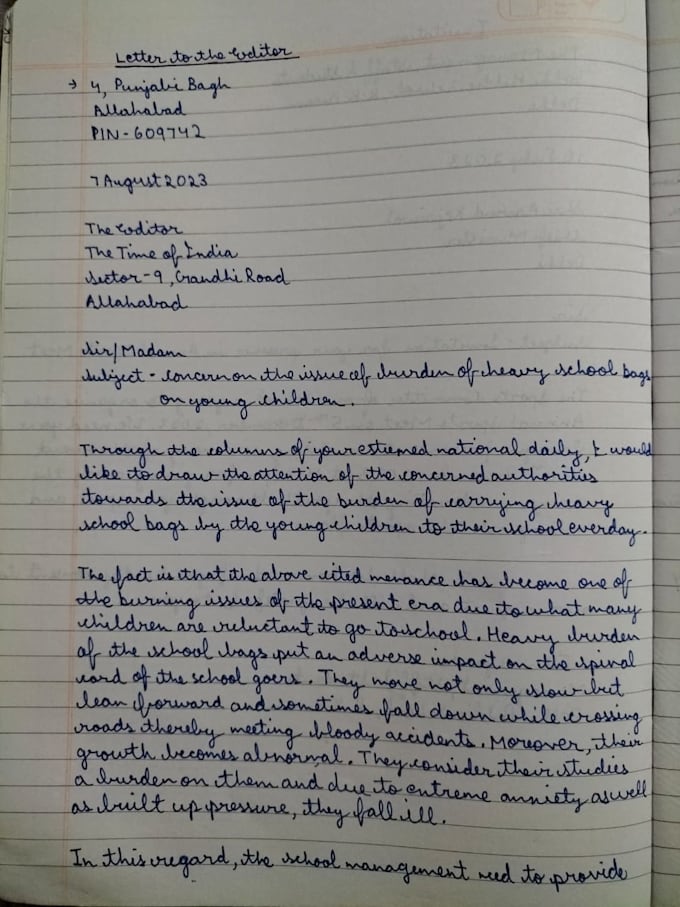 Letter to the Editor
→ 4, Punjabi Bagh
Allahabad
PIN - 609742
7 August 2023
The Editor
The Time of India
Sector - 9, Gandhi Road
Allahabad
Sir/Madam
Subject - Concern on the issue of burden of heavy school bags
on young children.
Through the columns of your estiemed national daily, I would
like to draw the attention of the concerned authorities
towards the issue of the burden of carrying heavy
school bags by the young children to their school everday.
The fact is that the above cited menance has become one of
the burning issues of the present era due to what many
children are reluctant to go to school. Heavy burden
of the school bags put an adverse impact on the spinal
card of the school goers. They move not only slow but
lean forward and sometimes fall down while crossing
roads thereby meeting bloody accidents. Moreover, their
growth becomes abnormal. They consider their studies
a burden on them and due to extreme anxiety as well
as built up pressure, they fall ill.
In this regard, the school management need to provide